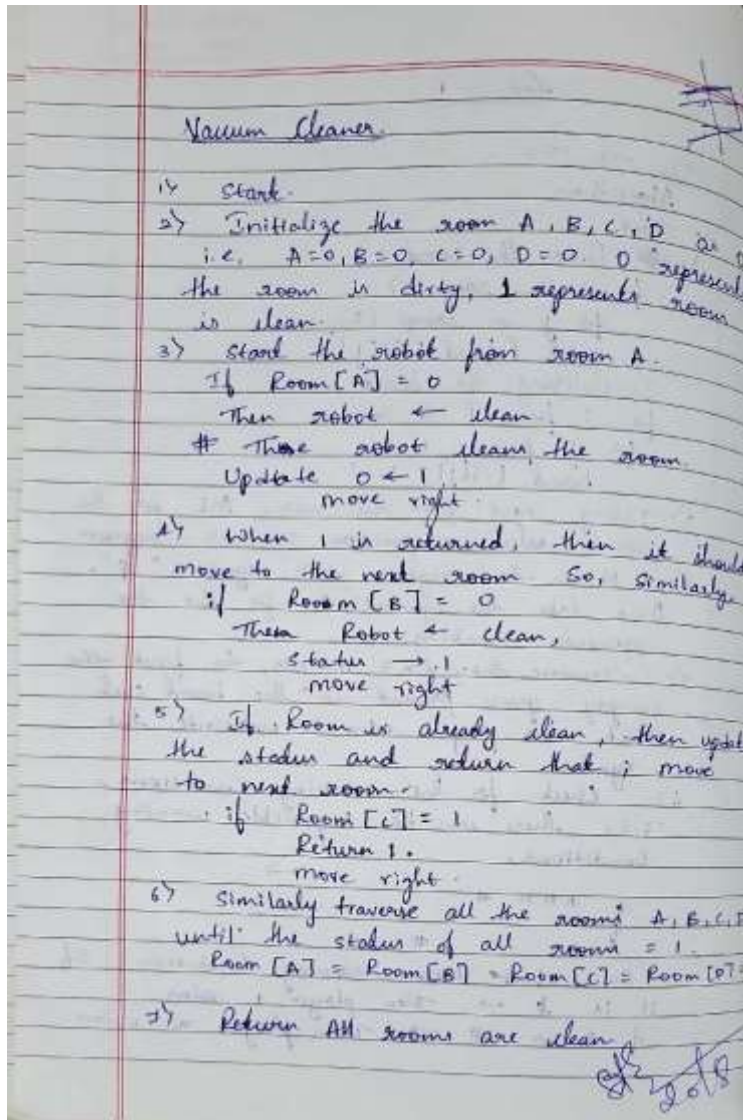 Vacuum Cleaner
1) Start.
2) Initialize the room A, B, C, D as 0
i.e. A=0, B=0, C=0, D=0. 0 represents
the room is dirty, 1 represents room
is clean.
3) Start the robot from room A.
If Room[A] = 0
Then robot ← clean
# robot cleans the room.
Update 0 ← 1
move right.
4) When 1 is returned, then it should
move to the next room So, Similarly
if Room [B] = 0
Then Robot ← clean,
Status → 1
move right
5) If Room is already clean, then update
the status and return that; move
to next room.
if Room [C] = 1
Return 1.
move right.
6) Similarly traverse all the rooms A, B, C, D
until the status of all rooms = 1.
Room [A] = Room[B] = Room[C] = Room[D] =
7) Return All rooms are clean